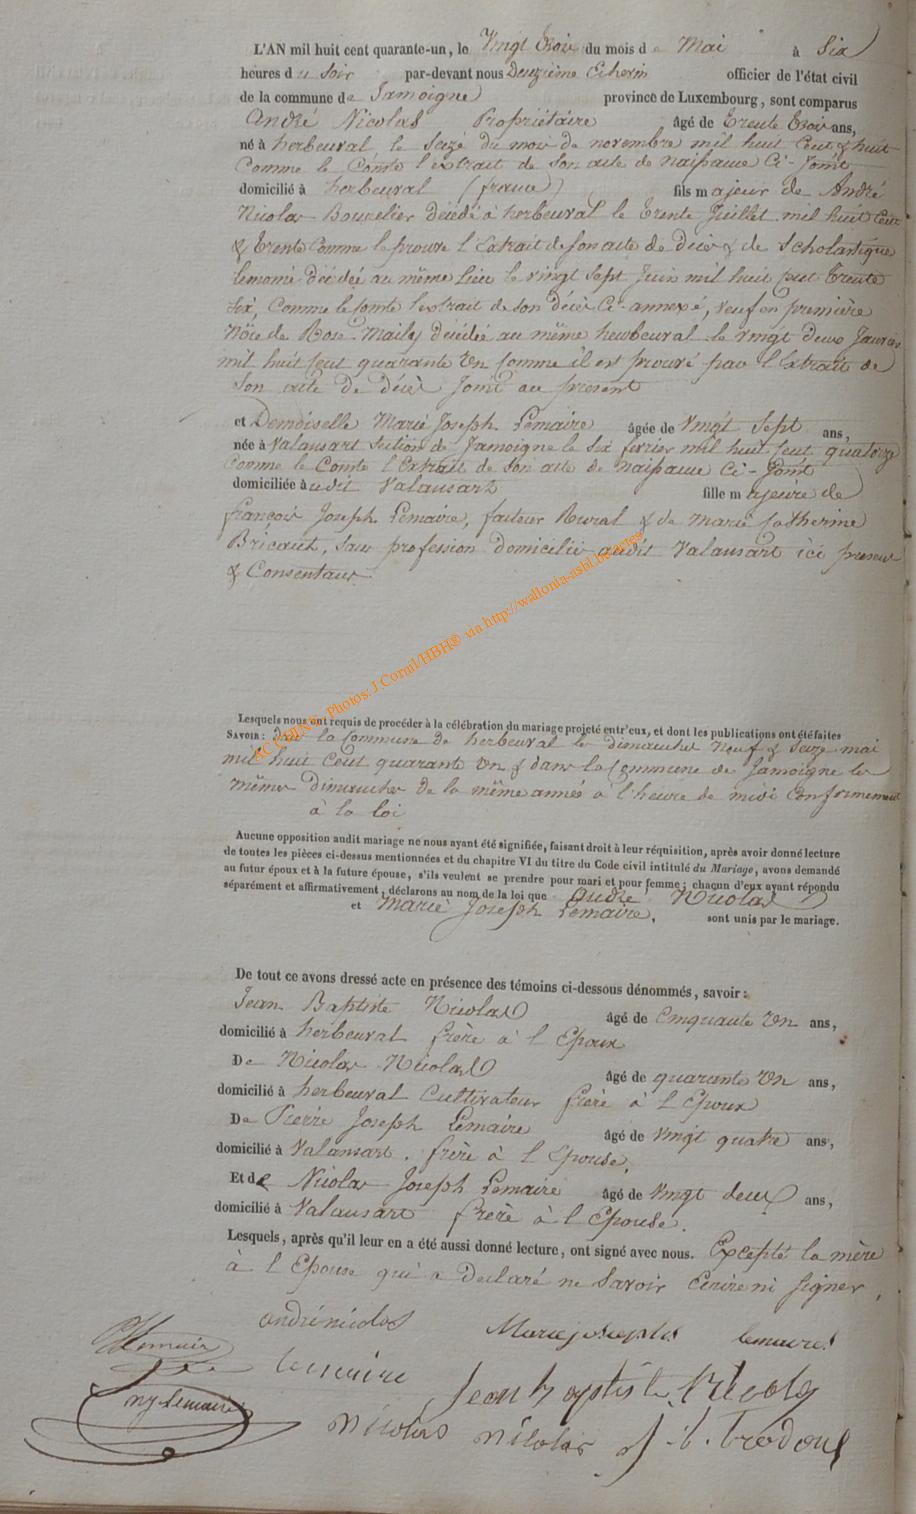 L'AN mil huit cent quarante-un, le Vingt trois du mois de Mai à Six
heures du Soir par-devant nous Deuxième Echevin officier de l'état civil
de la commune de Jamoigne province de Luxembourg, sont comparus
André Nicolas Propriétaire âgé de trente trois ans,
né à herbeuval le Seize du mois de novembre mil huit Cent & huit
Comme le Conste l'extrait de Son acte de naissance Ci-Joint
domicilié à herbeuval (france) fils majeur de André
Nicolas Bourrelier décédé à herbeuval le trente Juillet mil huit Cent
& trente Comme le prouve l'Extrait de son acte de décès & de Scholastique
Lemomé décédée au même Lieu le vingt Sept Juin mil huit Cent trente
Six, Comme le Conste l'extrait de Son décès Ci-annexé, veuf en première
Nôce de Rose décédée au même herbeuval le vingt deux Janvier
mil huit Cent quarante Un Comme il est prouvé par l'Extrait de
Son acte de décès Joint au present
et Demoiselle Marie Joseph Lemaire âgée de Vingt Sept ans,
née à Valansart Section de Jamoigne le Six fevrier mil huit Cent quatorze
Comme le Conste l'Extrait de Son acte de naissance Ci-Joint
domiciliée audit Valansart fille majeure de
françois Joseph Lemaire, facteur Rural & de Marie Catherine
Bricaut, Sans profession domicilié audit Valansart ici present
& Consentant
AC CHINY - Photos: J.Cornil/HBH® via http://wallonia-asbl.be/actes
Lesquels nous ont requis de procéder à la célébration du mariage projeté entr'eux, et dont les publications ont été faites
SAVOIR: dans la Commune de herbeuval les dimanches Neuf & Seize mai
mil huit Cent quarante Un & dans la Commune de Jamoigne les
mêmes Dimanches de la même année à l'heure de midi Conformement
à la loi
Aucune opposition audit mariage ne nous ayant été signifiée, faisant droit à leur réquisition, après avoir donné lecture
de toutes les pièces ci-dessus mentionnées et du chapitre VI du titre du Code civil intitulé du Mariage, avons demandé
au futur époux et à la future épouse, s'ils veulent se prendre pour mari et pour femme; chacun d'eux ayant répondu
séparément et affirmativement, déclarons au nom de la loi que André Nicolas
et Marie Joseph Lemaire, sont unis par le mariage.
De tout ce avons dressé acte en présence des témoins ci-dessous dénommés, savoir:
Jean Baptiste Nicolas âgé de Cinquante Un ans,
domicilié à herbeuval frère à l'Epoux
De Nicolas Nicolas âgé de quarante Un ans,
domicilié à herbeuval Cultivateur frère à l'Epoux
De Pierre Joseph Lemaire âgé de Vingt quatre ans,
domicilié à Valansart, frère à l'Epouse,
Et de Nicolas Joseph Lemaire âgé de Vingt deux ans,
domicilié à Valansart frère à l'Epouse.
Lesquels, après qu'il leur en a été aussi donné lecture, ont signé avec nous. Excepté la mère
à l'Epouse qui a Declaré ne Savoir Ecrire ni Signer,
andré nicolas Marie joseph lemaire
Lemaire lemaire Jean baptiste Nicolas
nj lemaire Nicolas Nicolas